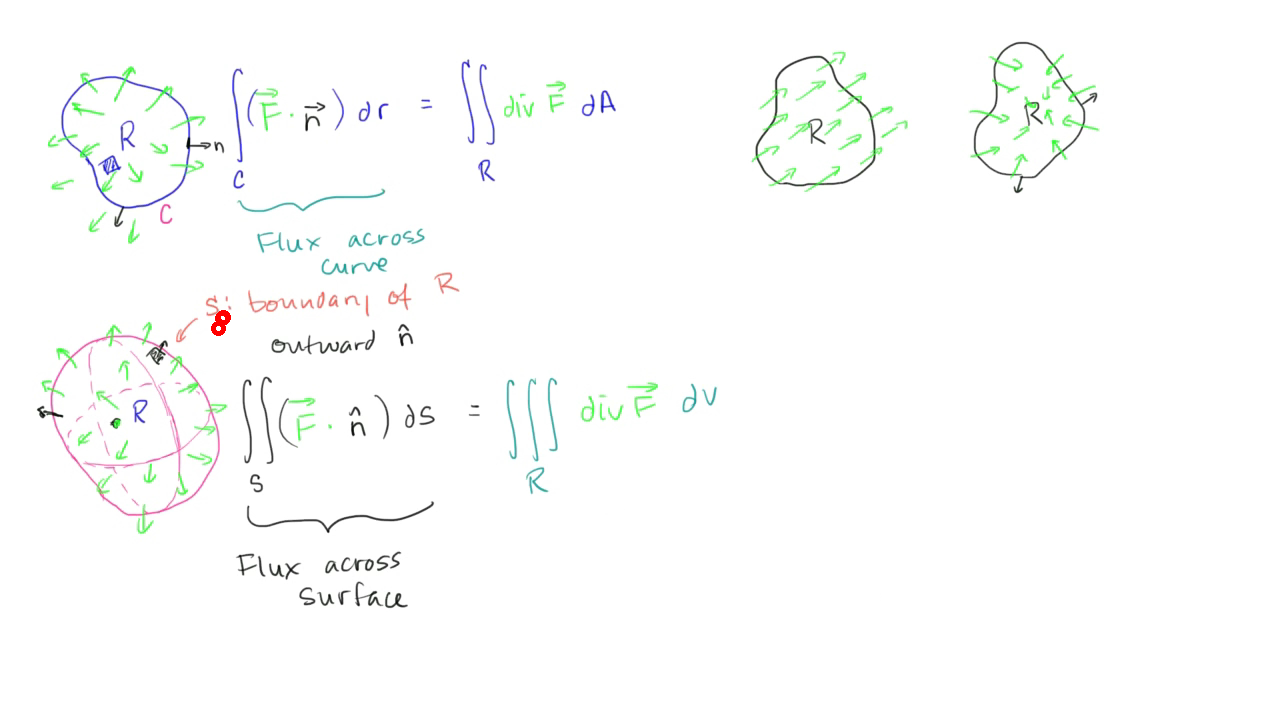 R
n
C
∫_C (F⃗ · n⃗) dr = ∬_R div F⃗ dA
Flux across
curve
R
R
S: boundary of R
outward n̂
R
∬_S (F⃗ · n̂) dS = ∭_R div F⃗ dv
Flux across
surface